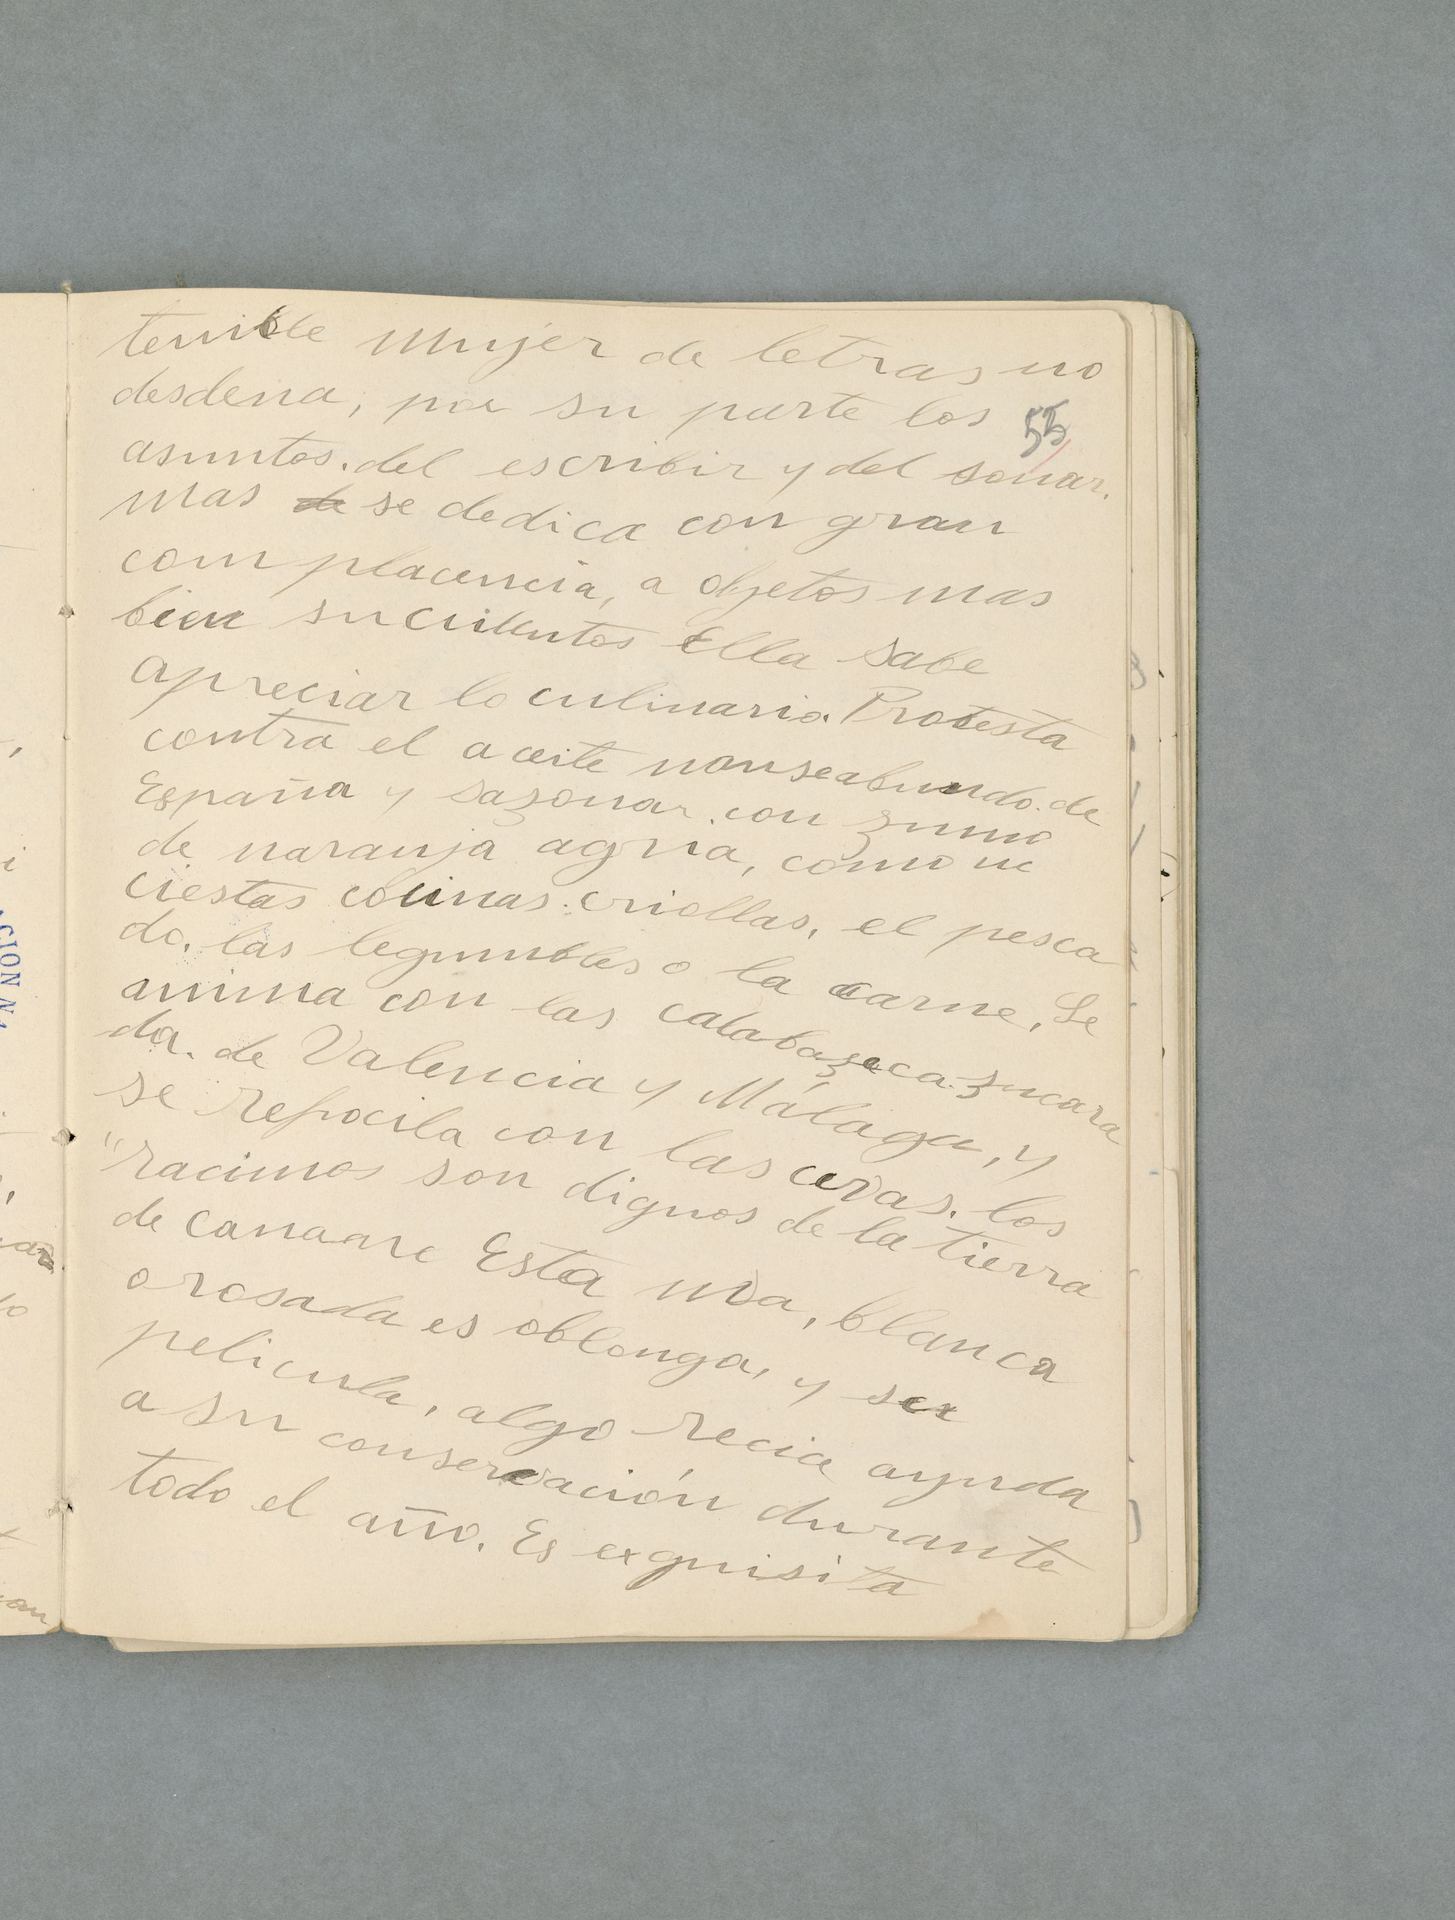 terrible mujer de letras no
desdena, por su parte los
55
asuntos. del escribir y del sonar.
mas de se dedica con gran
complacencia, a objetos mas
bien suculentos Ella sabe
apreciar lo culinario. Protesta
contra el aceite nauseabundo. de
España y sazonar. con zumo
de naranja agria, como en
ciertas cocinas. criollas, el pesca
do. las legumbres o la carne, Se
anima con las calabaza azucara
da. de Valencia y Málaga, y
se refocila con las uvas. los
"racimos son dignos de la tierra
de canaan Esta uva, blanca
o rosada es oblonga, y su
pelicula, algo recia ayuda
a su conservación durante
todo el año. Es exquisita
CION N